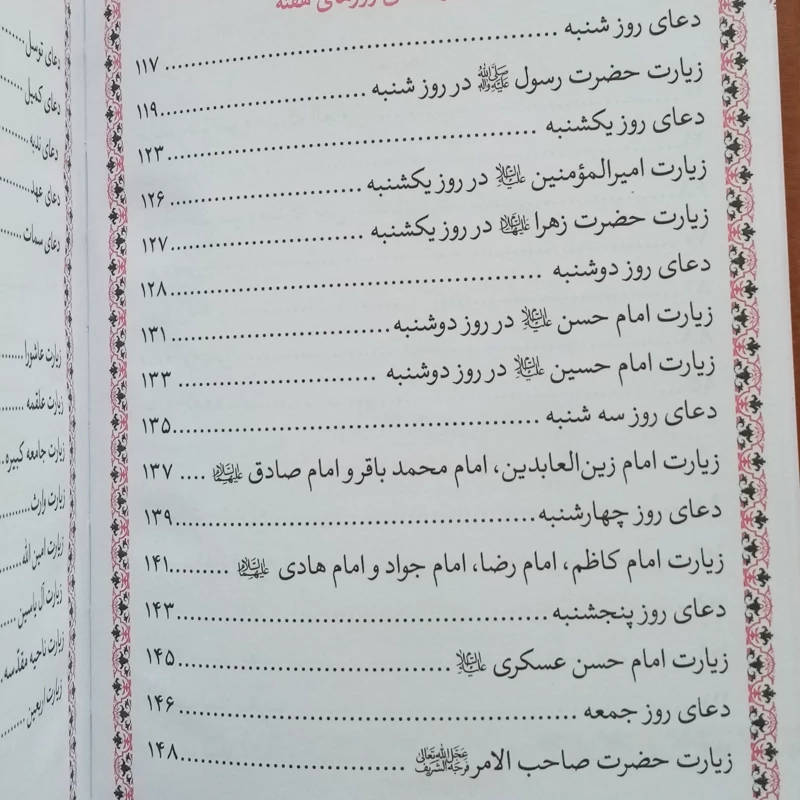 روزهای هفته
دعای روز شنبه ........ ۱۱۷
زیارت حضرت رسول ﷺ در روز شنبه ........ ۱۱۹
دعای روز یکشنبه ........ ۱۲۳
زیارت امیرالمؤمنین علیه‌السلام در روز یکشنبه ........ ۱۲۶
زیارت حضرت زهرا علیهاالسلام در روز یکشنبه ........ ۱۲۷
دعای روز دوشنبه ........ ۱۲۸
زیارت امام حسن علیه‌السلام در روز دوشنبه ........ ۱۳۱
زیارت امام حسین علیه‌السلام در روز دوشنبه ........ ۱۳۳
دعای روز سه شنبه ........ ۱۳۵
زیارت امام زین‌العابدین، امام محمد باقر و امام صادق علیهم‌السلام .... ۱۳۷
دعای روز چهارشنبه ........ ۱۳۹
زیارت امام کاظم، امام رضا، امام جواد و امام هادی علیهم‌السلام ........ ۱۴۱
دعای روز پنجشنبه ........ ۱۴۳
زیارت امام حسن عسکری علیه‌السلام ........ ۱۴۵
دعای روز جمعه ........ ۱۴۶
زیارت حضرت صاحب الامر عجل الله تعالی فرجه الشریف ........ ۱۴۸
دعای توسل ........
دعای کمیل ........
دعای ندبه ........
دعای عهد ........
دعای سمات ........
زیارت عاشورا ........
زیارت علقمه ........
زیارت جامعه کبیره ..
زیارت وارث ........
زیارت امین الله ........
زیارت آل یاسین ......
زیارت ناحیه مقدّسه .
زیارت اربعین ........